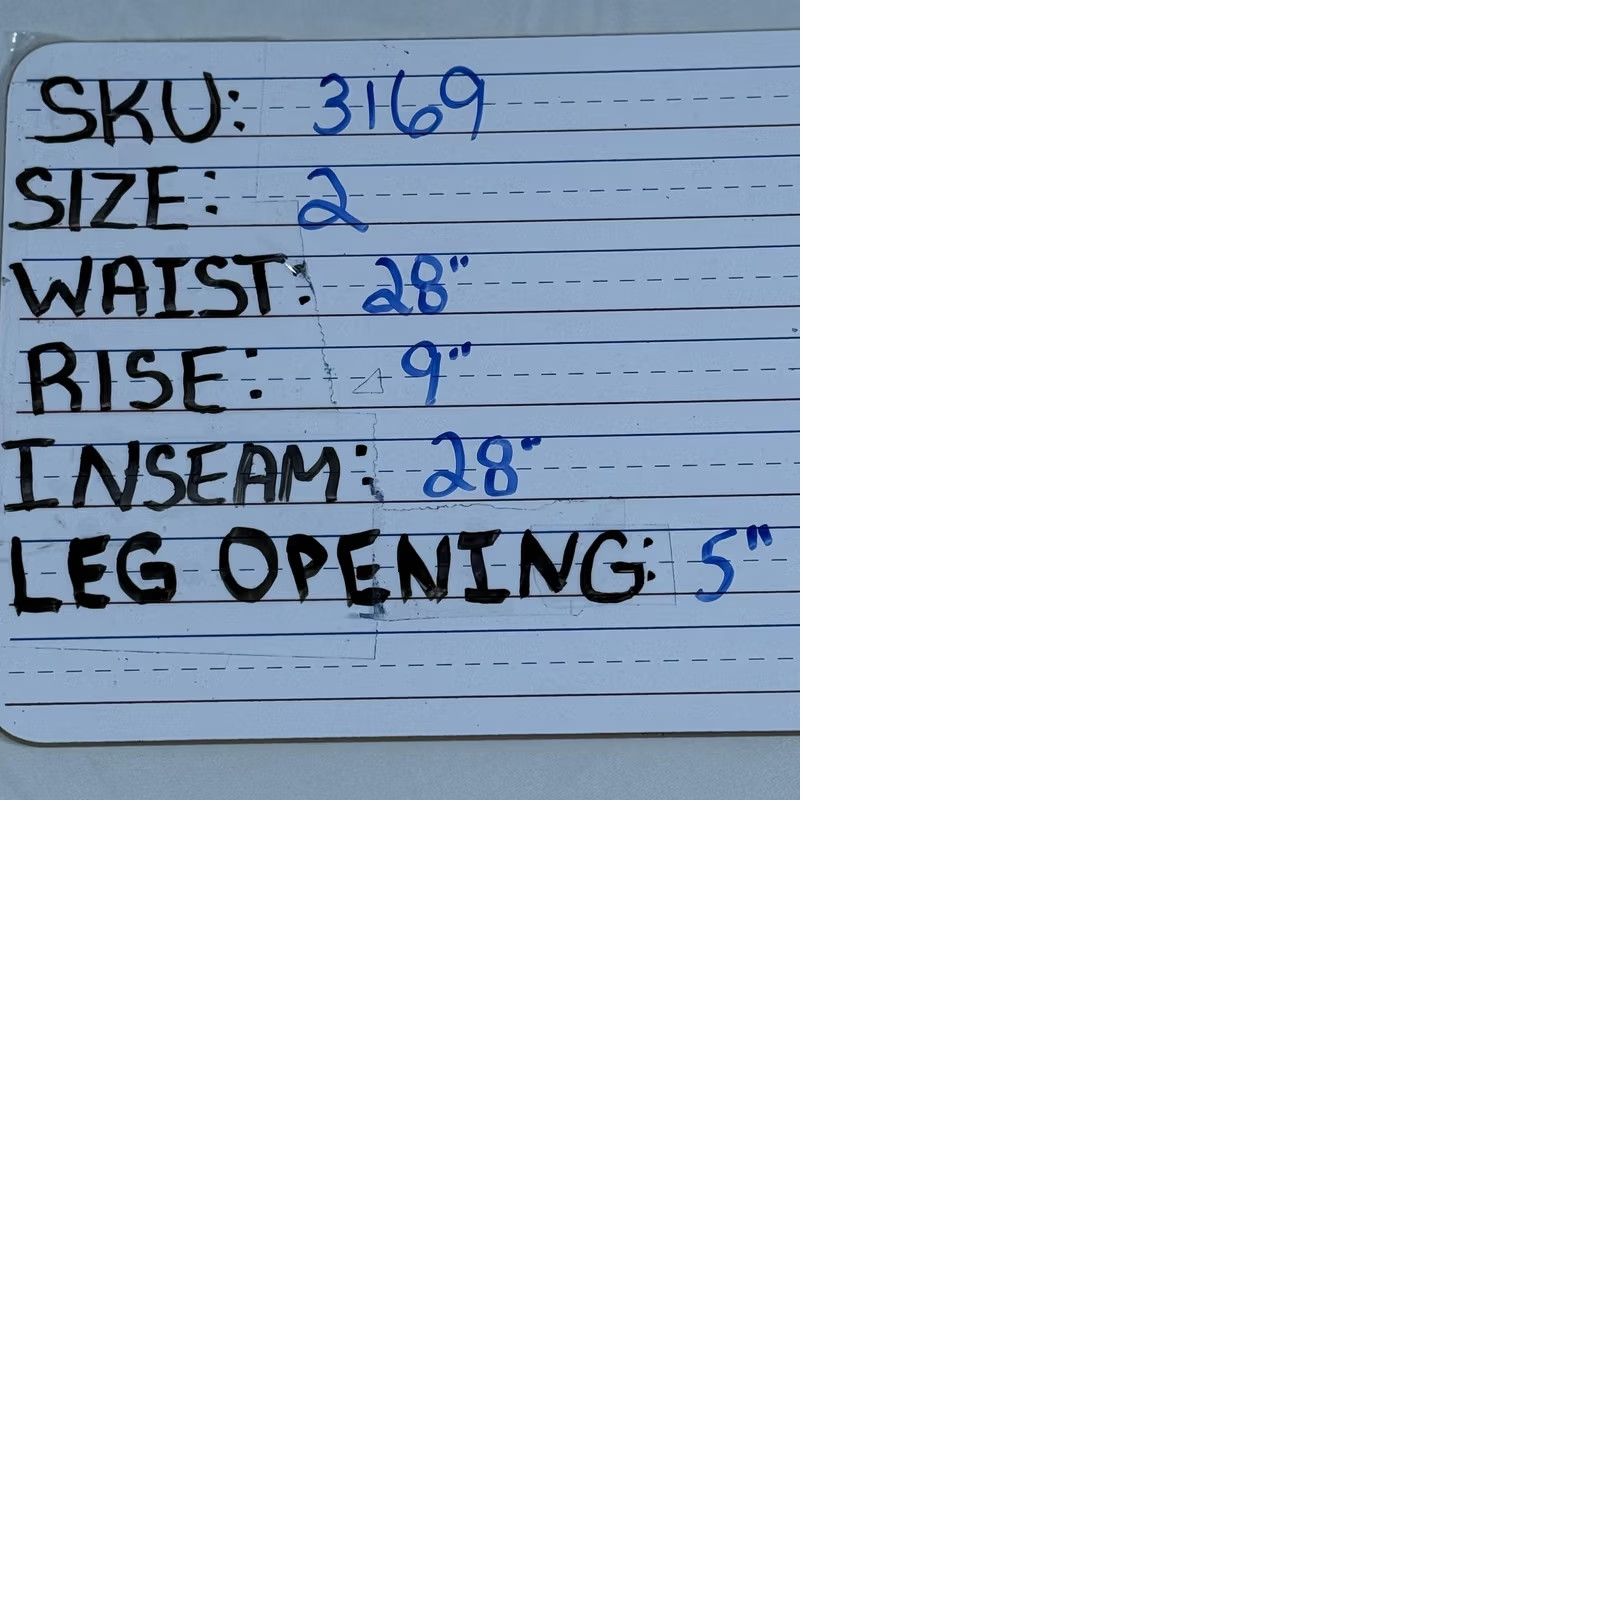 SKU: 3169
SIZE: 2
WAIST: 28"
RISE: 9"
INSEAM: 28"
LEG OPENING: 5"